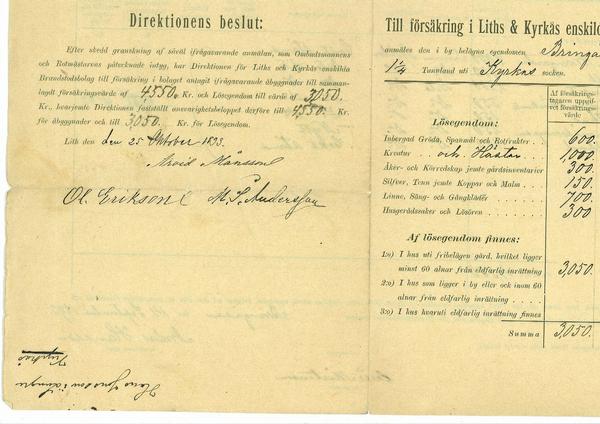 Direktionens beslut:
Efter skedd granskning af såväl ifrågavarande anmälan, som Ombudsmannens
och Rotmästarens påtecknade intyg, har Direktionen för Liths och Kyrkås enskilda
Brandstodsbolag till försäkring i bolaget antagit ifrågavarande åbyggnader till samman-
lagdt försäkringsvärde af 4550. Kr. och Lösegendom till värde af 3050.
Kr., hvarjemte Direktionen fastställt ansvarighetsbeloppet derföre till 4550. Kr.
för åbyggnader och till 3050. Kr. för Lösegendom.
Lith den 25 Oktober 1893.
Arvid Månsson
Ol. Erikson M. S. Andersson
Kyrkås
Till försäkring i Liths & Kyrkås enskild
anmäles den i by belägna egendomen Bringå
1 1/4 Tunnland uti Kyrkås socken.
Af försäkrings-
tagaren uppgif-
vet försäkrings-
värde
Lösegendom:
Inbergad Gröda, Spanmål och Rotfrukter 600.
Kreatur och Hästar 1,000.
Åker- och Körredskap jemte gårdsinventarier 300.
Silfver, Tenn jemte Koppar och Malm 150.
Linne, Säng- och Gångkläder 700.
Husgerådssaker och Lösören 300
Af lösegendom finnes:
1:o) I hus uti fribelägen gård, hvilket ligger
minst 60 alnar från eldfarlig inrättning 3,050.
2:o) I hus som ligger i by eller och inom 60
alnar från eldfarlig inrättning
3:o) I hus hvaruti eldfarlig inrättning finnes
Summa 3,050.